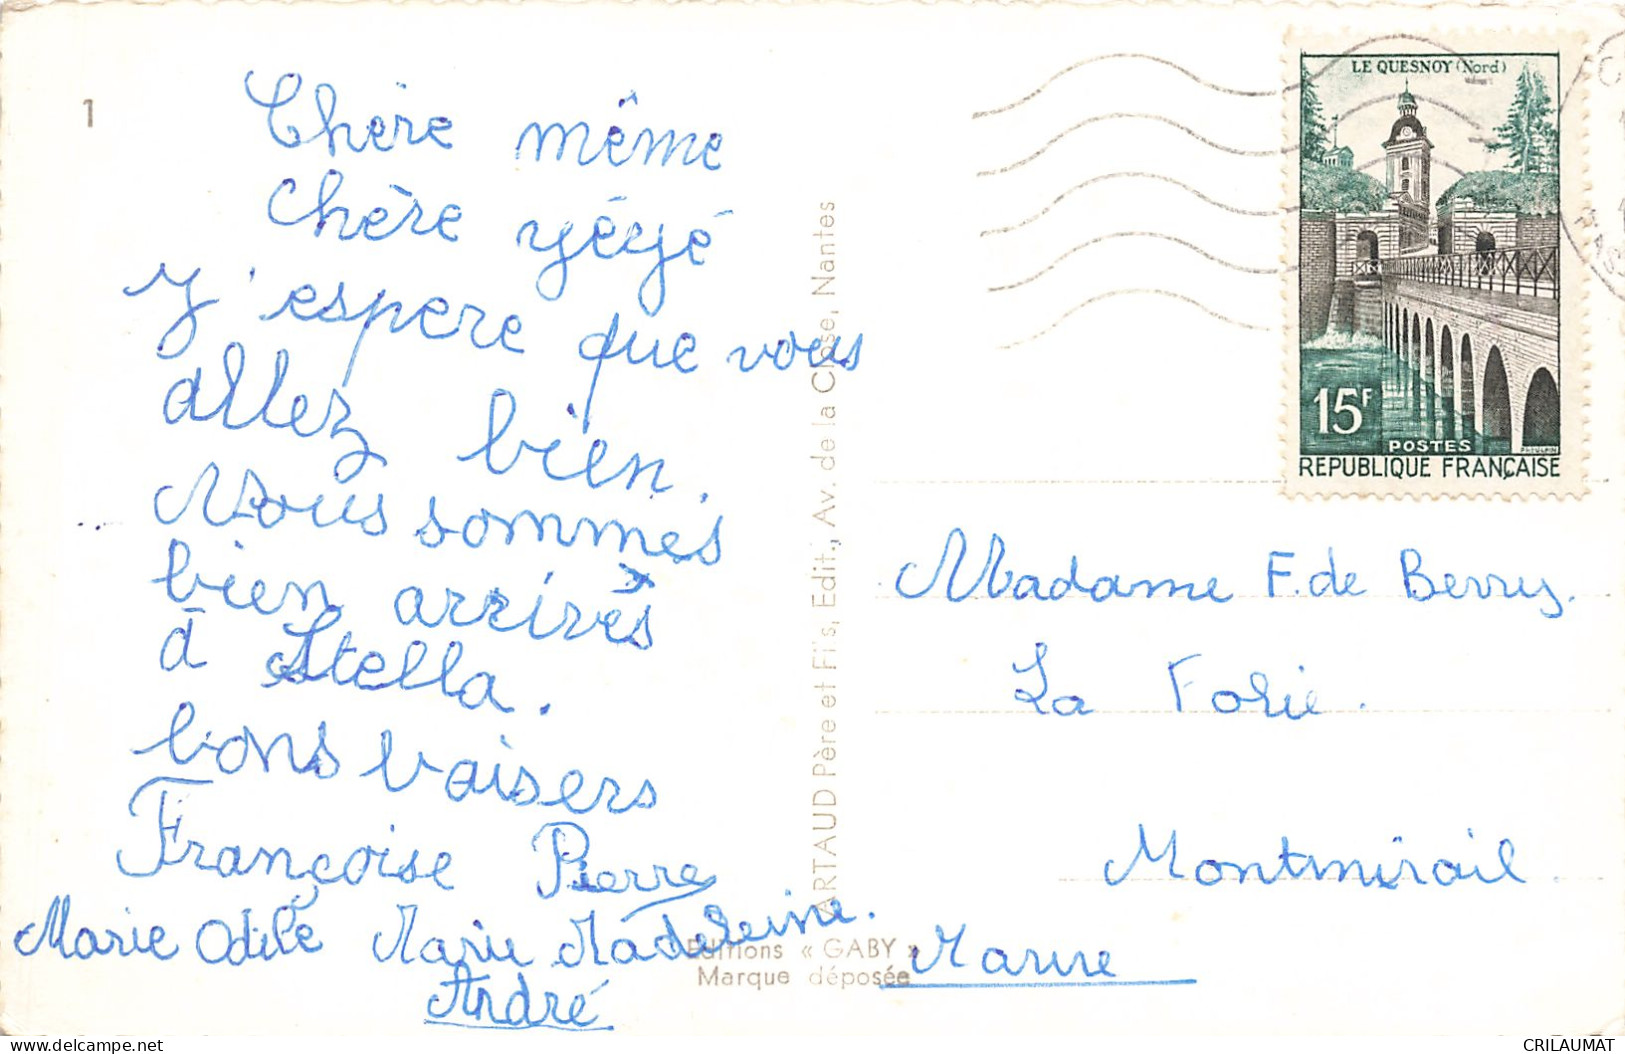 1
Chère même
Chère yéyé
J'espere que vous
allez bien.
Nous sommes
bien arrivés
à Stella.
bons baisers
Françoise Pierre
Marie Odile Marie Madeleine.
André
ARTAUD Père et Fils, Edit., Av. de la Close, Nantes
Editions « GABY »
Marque déposée
LE QUESNOY (Nord)
15F
POSTES
REPUBLIQUE FRANÇAISE
Madame F. de Berry.
La Folie.
Montmirail.
Marne
CRILAUMAT
delcampe.net